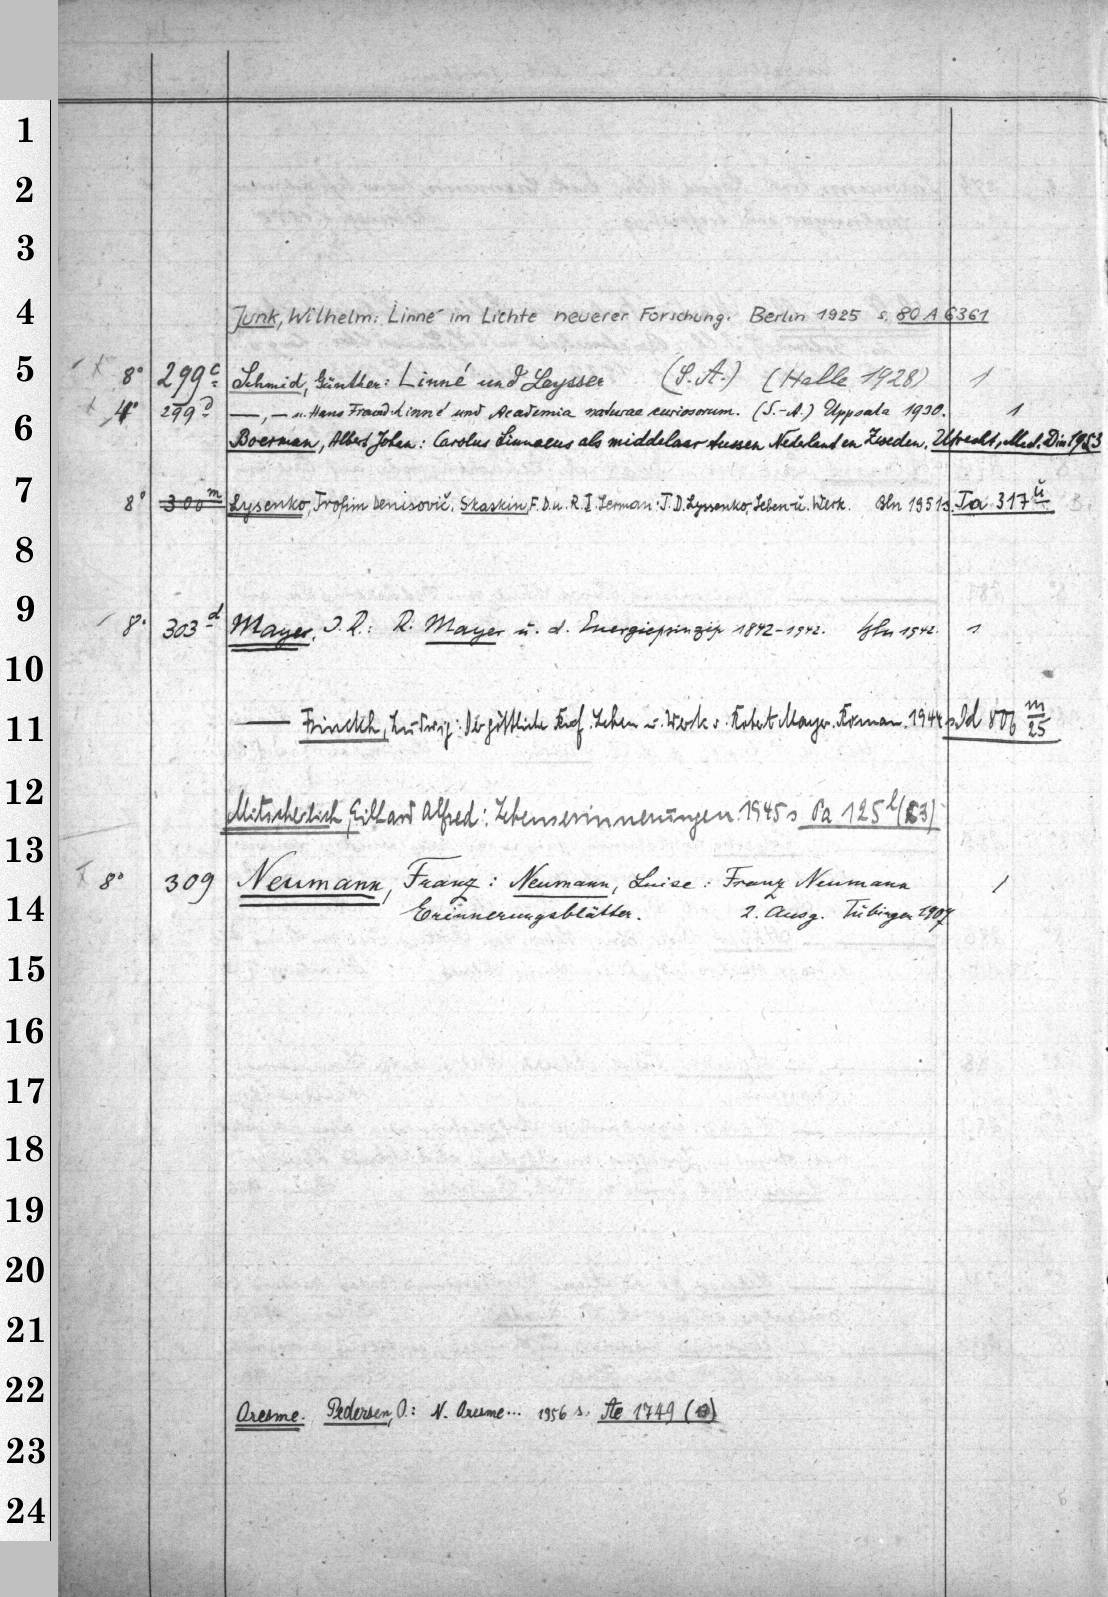 1
2
3
4 Junk, Wilhelm: Linné im Lichte neuerer Forschung. Berlin 1925 s. 80 A 6361
5 8° 299c Schmid, Günther: Linné und Leysser (S.A.) (Halle 1928) 1
4° 299d —, — u. Hans Freund: Linné und Academia naturae curiosorum. (S.-A.) Uppsala 1930. 1
6 Boerman, Albert Johan: Carolus Linnaeus als middelaar tussen Nederland en Zweden. Utrecht, Med. Diss 1953
7 8° 300m Lysenko, Trofim Denisovič. Skaskin, F. D. u. R. I. Lerman: T. D. Lyssenko, Leben u. Werk. Bln 1951 s. Ta 317ü
8
9 8° 303d Mayer, J. R.: R. Mayer u. d. Energieprinzip 1842-1942. Bln 1942. 1
10
11 — Finckh, Ludwig: Der göttliche Ruf. Leben u. Werk v. Robert Mayer. Roman. 1944 s. Dd 806 m/25
12 Mitscherlich, Eilhard Alfred: Lebenserinnerungen. 1945 s Pa 125 l (53)
13 8° 309 Neumann, Franz: Neumann, Luise: Franz Neumann 1
14 Erinnerungsblätter. 2. Ausg. Tübingen 1907
15
16
17
18
19
20
21
22 Oresme. Pedersen, O.: N. Oresme... 1956 s. Ae 1749 (8)
23
24